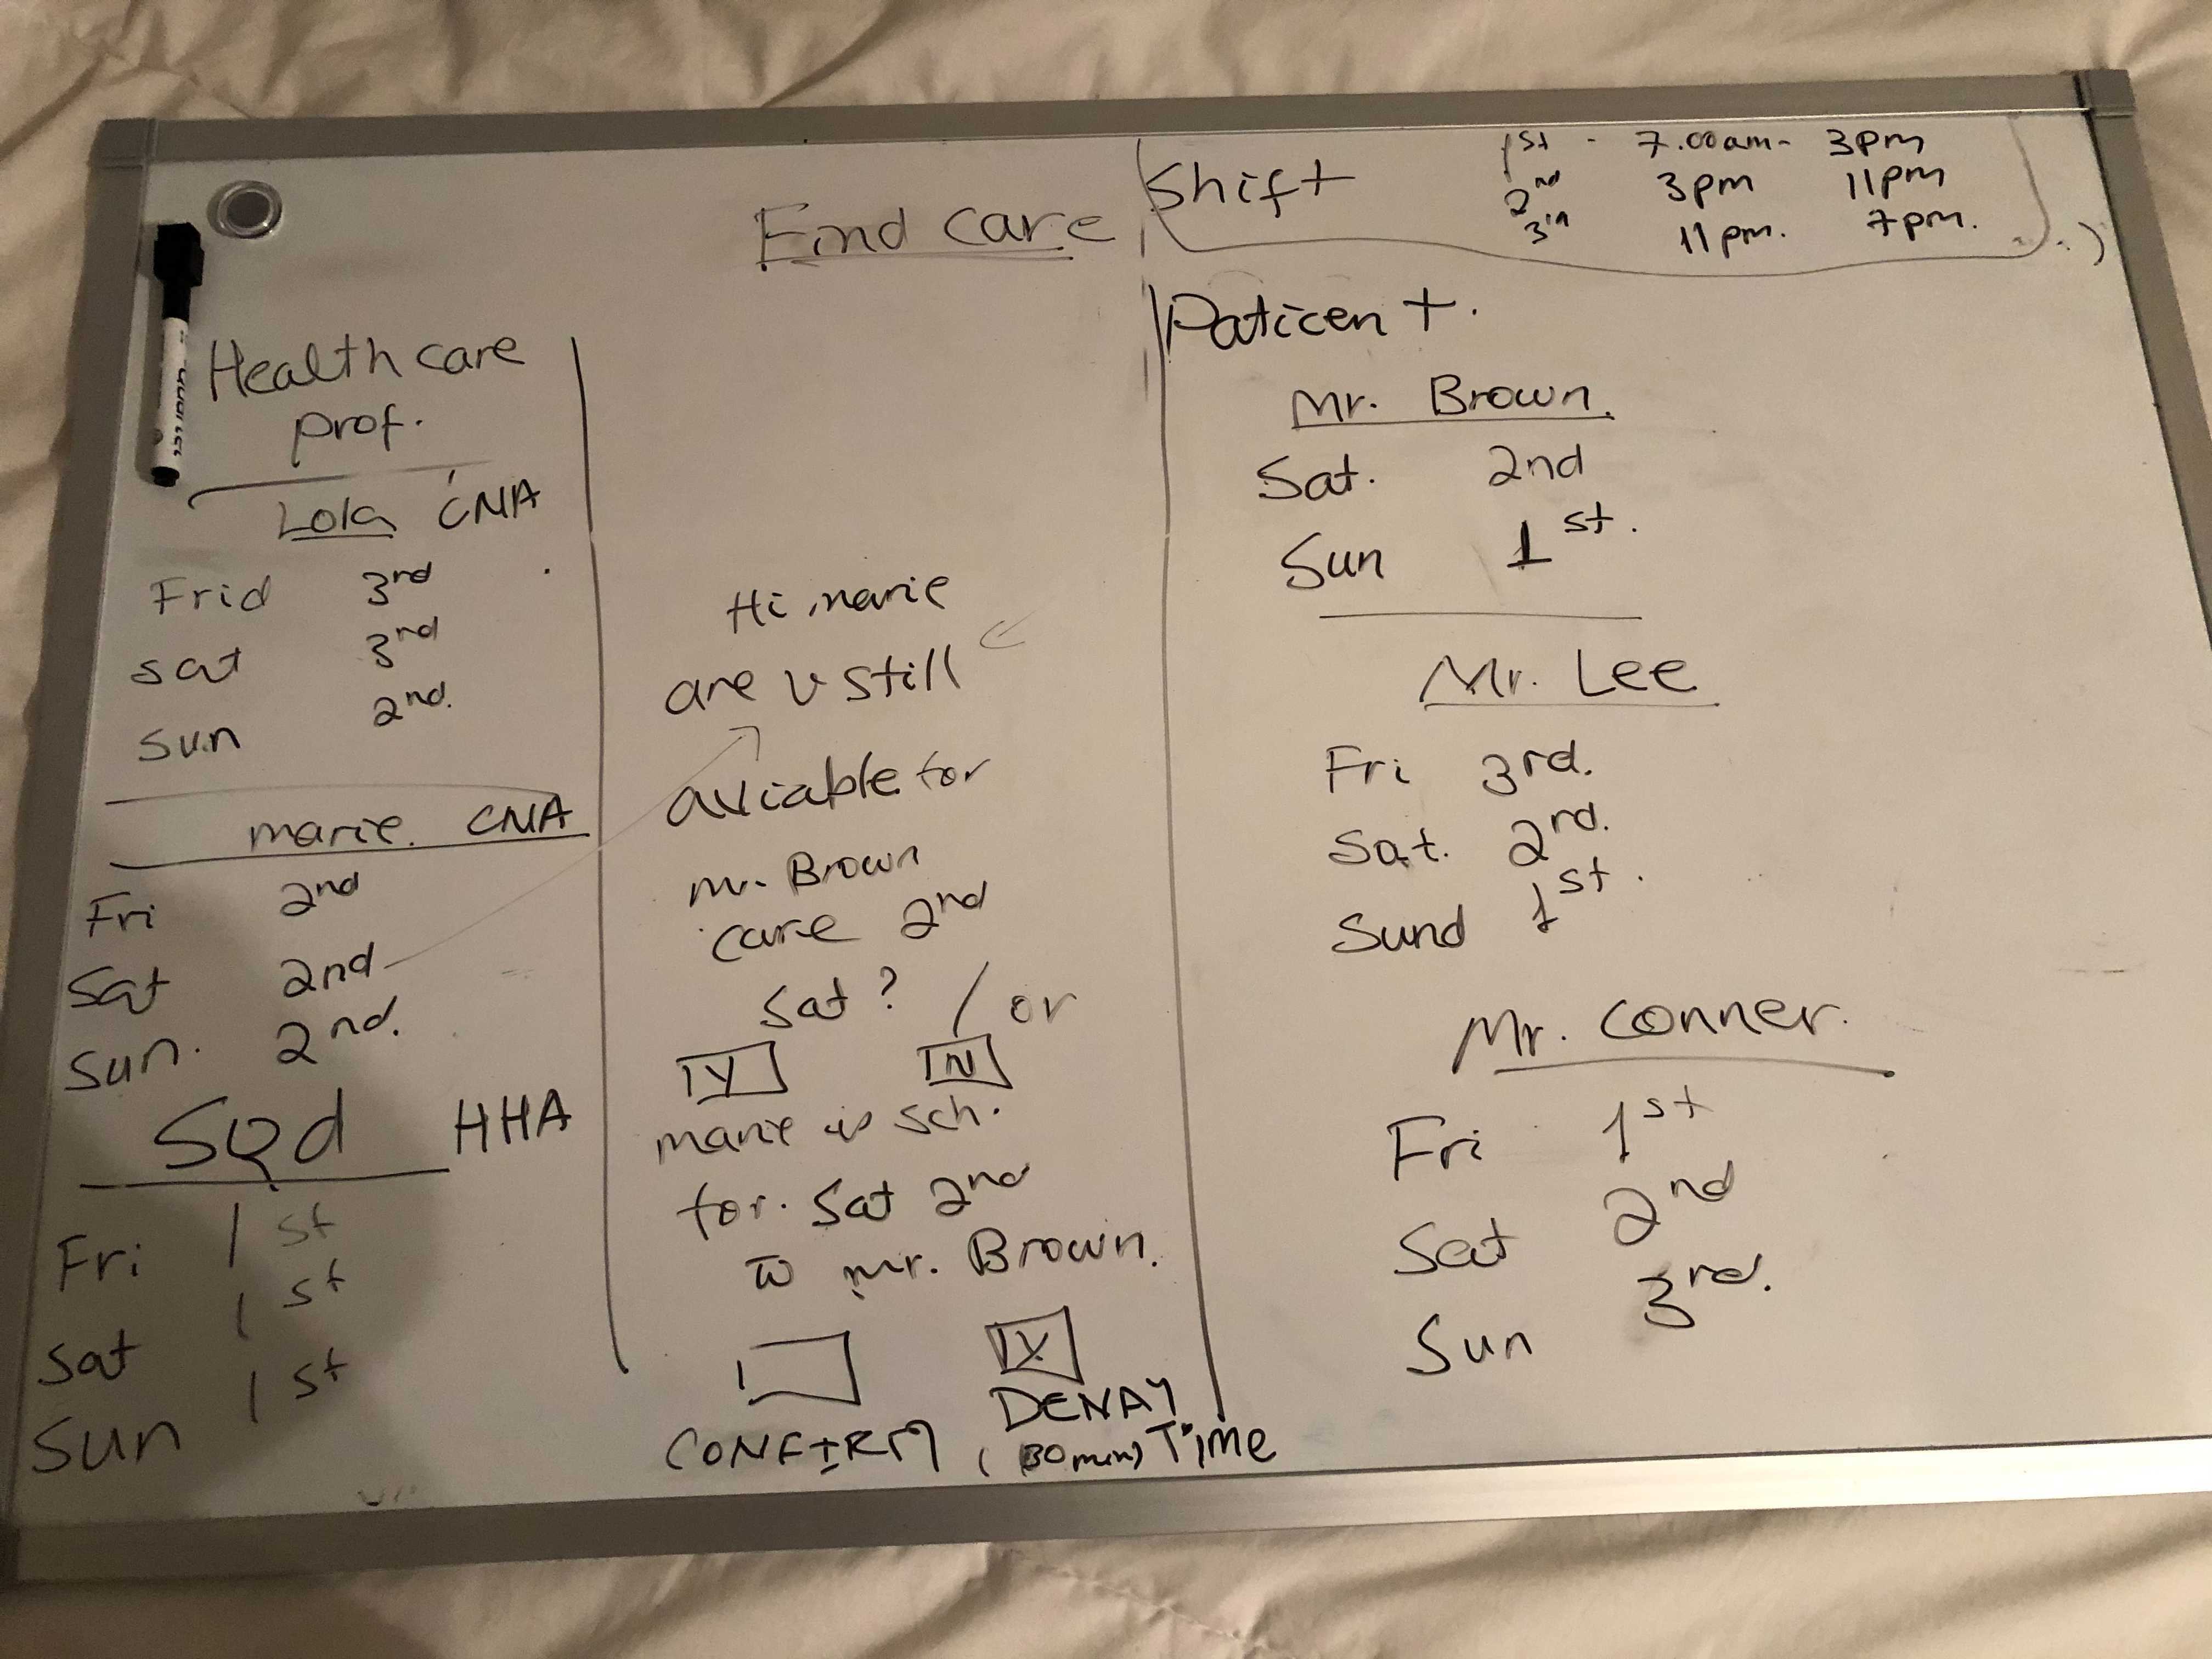 Find care
Shift
1st - 7.00am - 3pm
2nd 3pm 11pm
3pm. 7pm.
Health care
prof.
Lola CNA
Frid 3rd
Sat 3rd
Sun 2nd.
marie. CNA
Fri 2nd
Sat 2nd
Sun. 2nd.
HHA
Fri 1st
Sat 1st
Sun 1st
Hi marie
are u still
aviable for
mr. Brown
care 2nd
Sat? / or
Y N
marie is sch.
for. Sat 2nd
to mr. Brown.
X
CONFIRM DENAY
(30min) Time
Paticent.
Mr. Brown.
Sat. 2nd
Sun 1st.
Mr. Lee
Fri 3rd.
Sat. 2rd.
Sund 1st.
Mr. Conner.
Fri 1st
Sat 2nd
Sun 3rd.